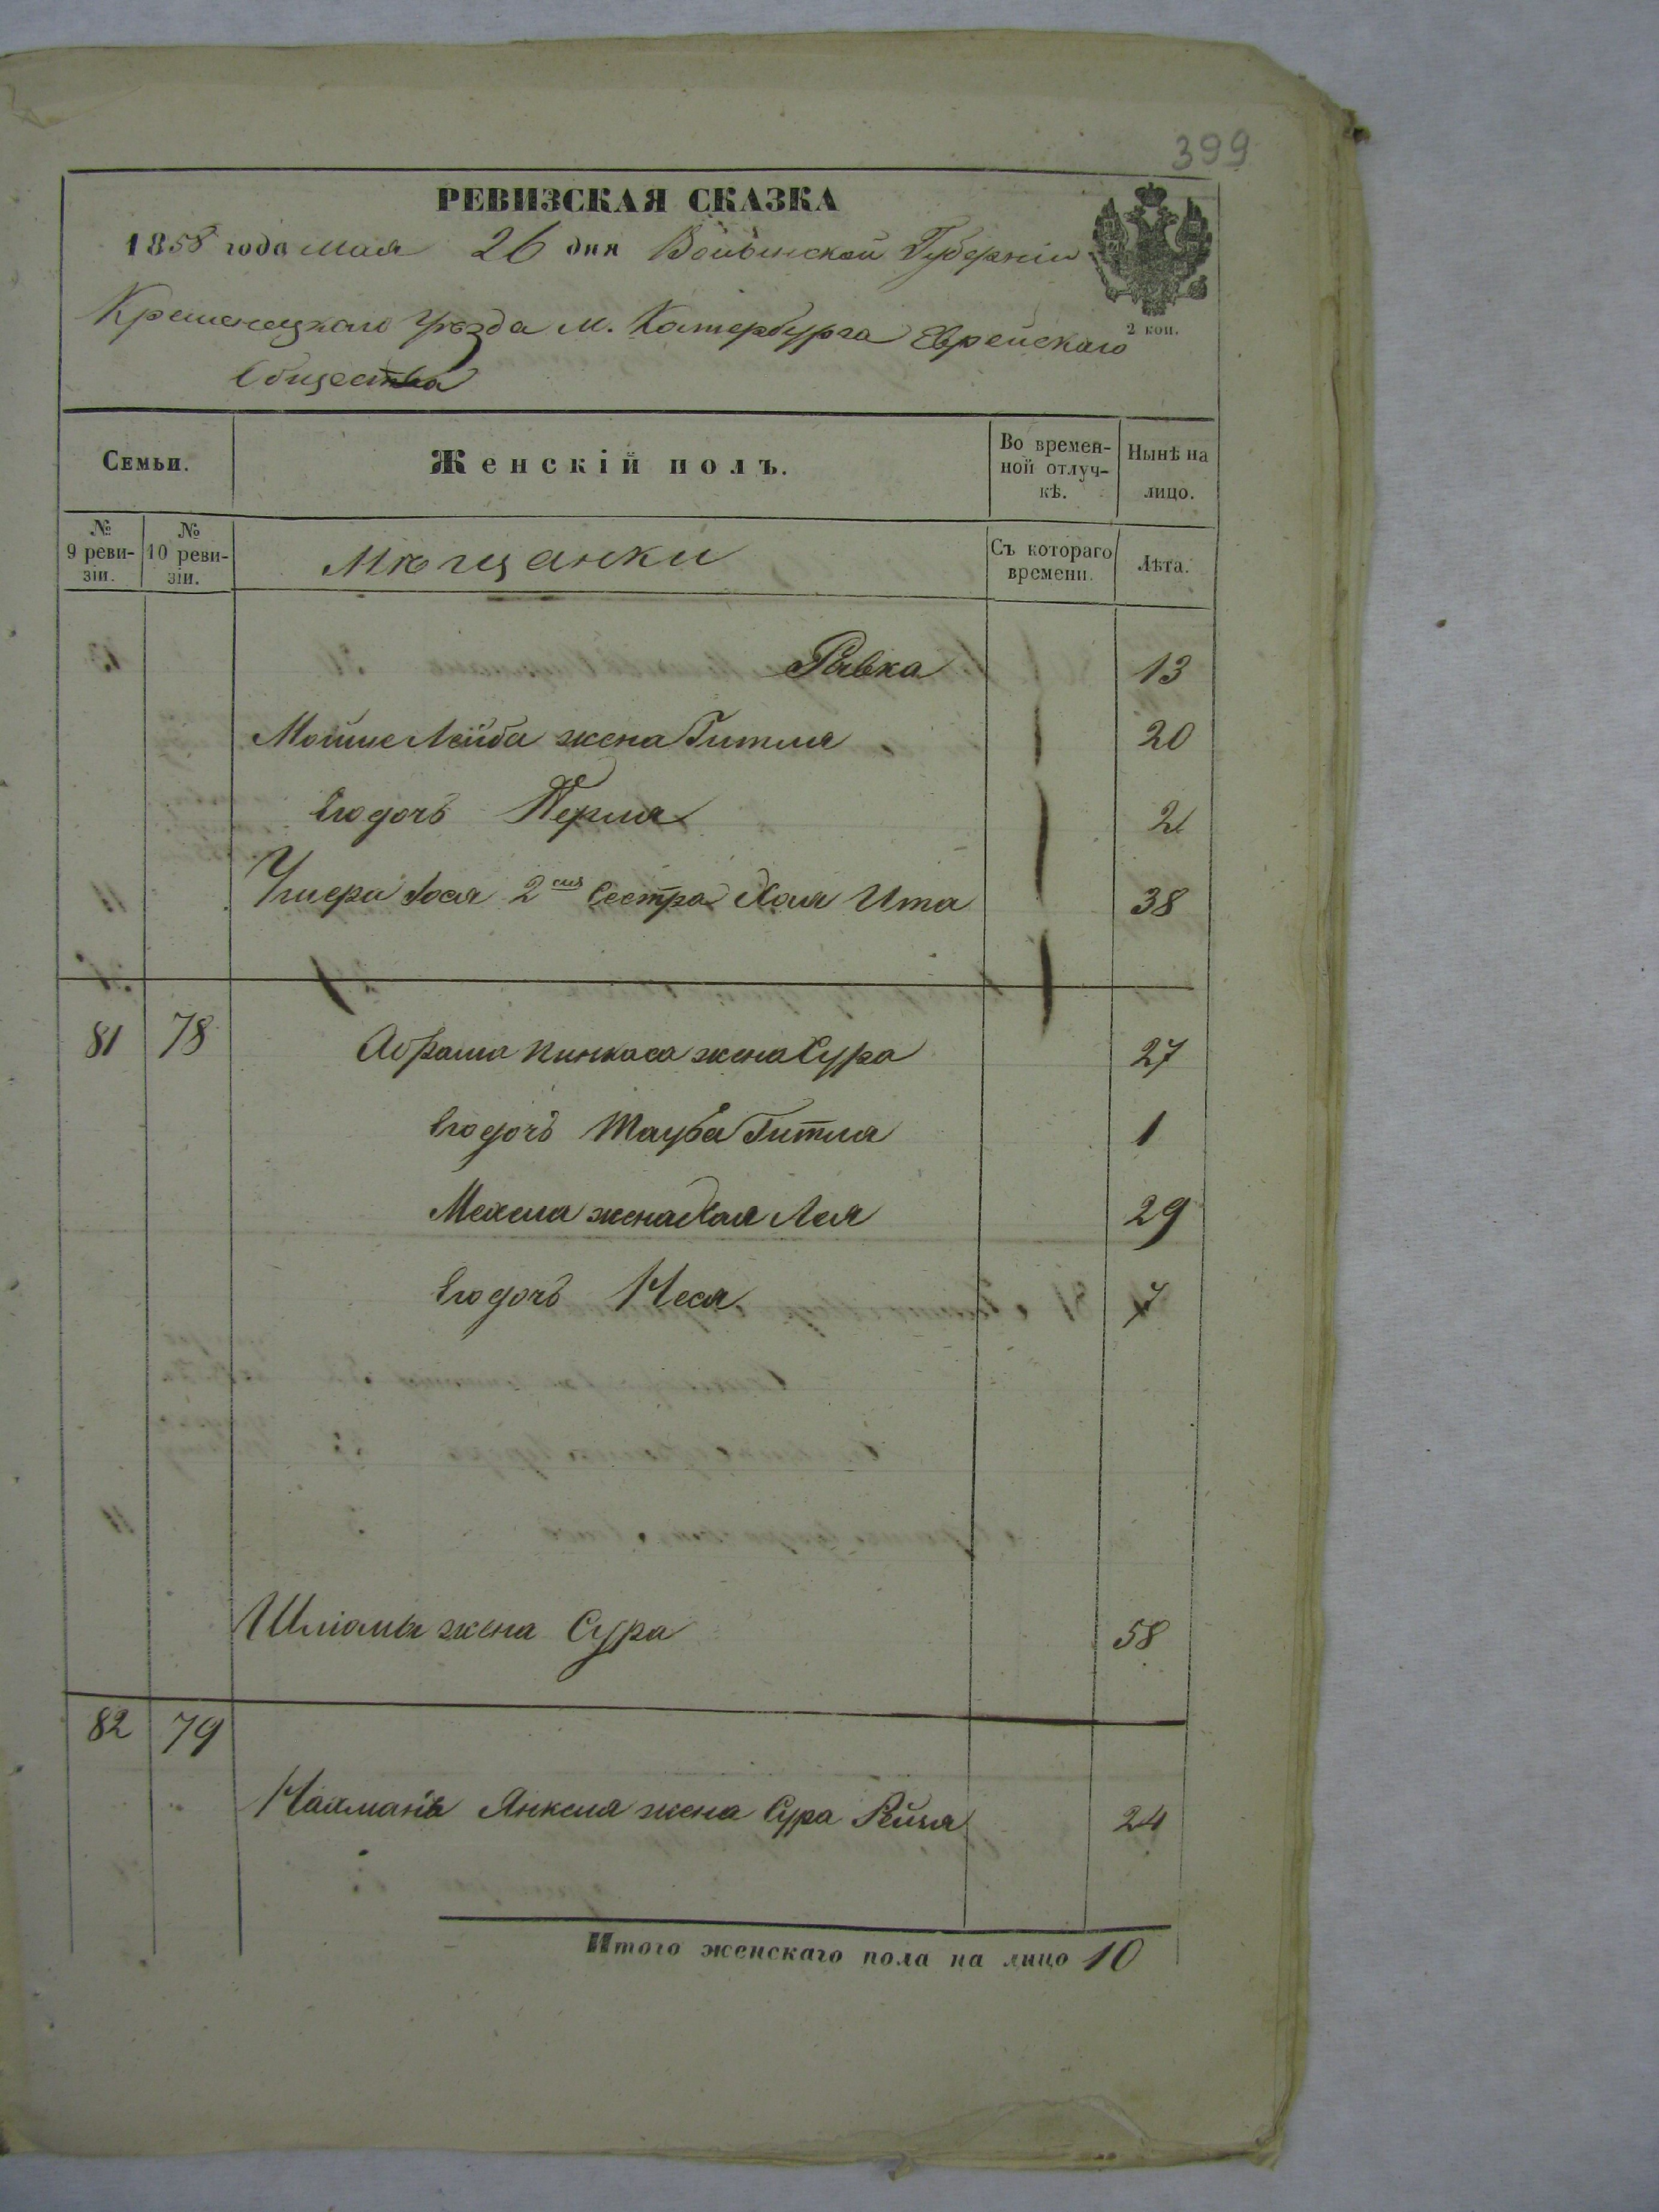 399
РЕВИЗСКАЯ СКАЗКА
1858 года мая 26 дня Волынской Губерніи
Кременецкаго Уѣзда м. Катербурга Еврейскаго
Общества
2 коп.
Семьи.
Женскій полъ.
Во времен-
ной отлуч-
кѣ.
Нынѣ на
лицо.
№
9 реви-
зіи.
№
10 реви-
зіи.
Мѣщанки
Съ котораго
времени.
Лѣта.
Ривка 13
Мошке Лейба жена Гитля 20
Его дочь Перля 2
2ая Сестра Хая Ита 38
81 78 Абрама Пинкаса жена Сура 27
Его дочь Тауба Гитля 1
Мехеля жена Хая Лея 29
Его дочь Неся 7
Шліомы жена Сура 58
82 79
Нахмана Янкеля жена Сура Рейзя 24
Итого женскаго пола на лицо 10